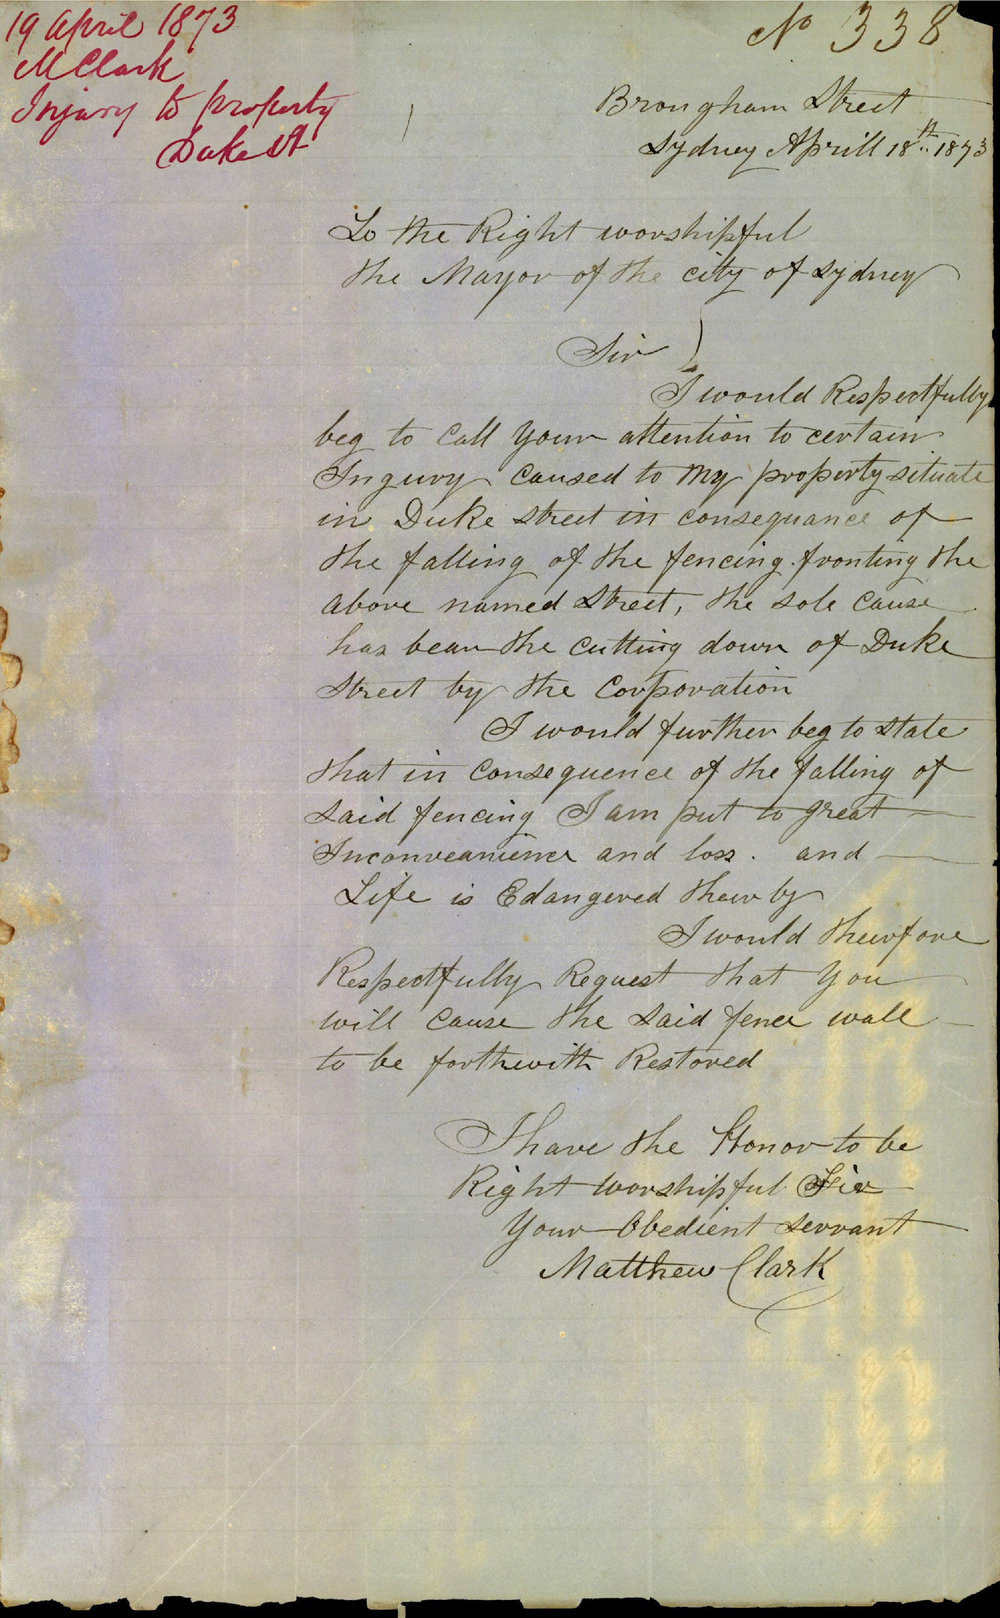 19 April 1873
M Clark
Injury to property
Duke St
No 338
Brougham Street
Sydney Aprill 18th 1873
To the Right worshipful
the Mayor of the city of Sydney
Sir
I would Respectfully
beg to call your attention to certain
Ingury caused to my property situate
in Duke street in consequance of
the falling of the fencing fronting the
above named street, the sole cause
has bean the cutting down of Duke
street by the Corporation
I would further beg to state
that in consequence of the falling of
said fencing I am put to great
Inconveanience and loss. and
Life is Edangered thearby
I would thearfore
Respectfully Request that you
will cause the said fence wall
to be forthwith Restored
I have the Honor to be
Right worshipful Sir
Your Obedient servant
Matthew Clark